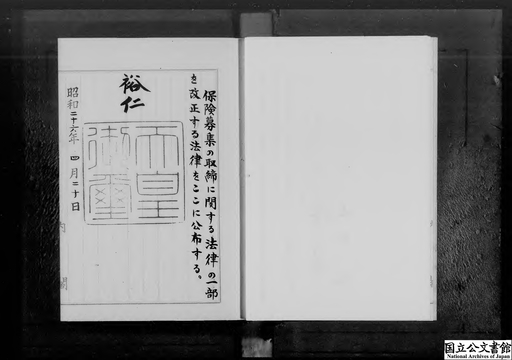 保険募集の取締に関する法律の一部
を改正する法律をここに公布する。
裕仁
天皇
御璽
昭和二十六年四月二十日
内閣
国立公文書館
National Archives of Japan